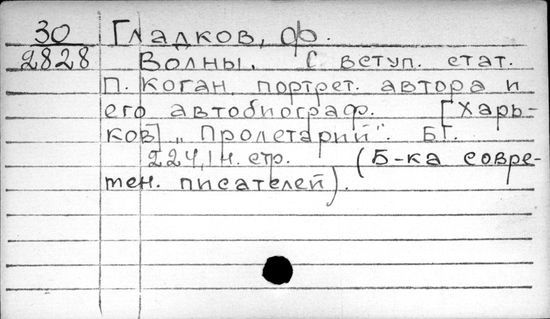 30 Гладков, Ф.
2828 Волны. С вступ. стат.
П. Коган, портрет. автора и
его автобиограф. [Харь-
ков] „Пролетарий". Б.Г.
224, 1 н. стр. (Б-ка совре-
мен. писателей).